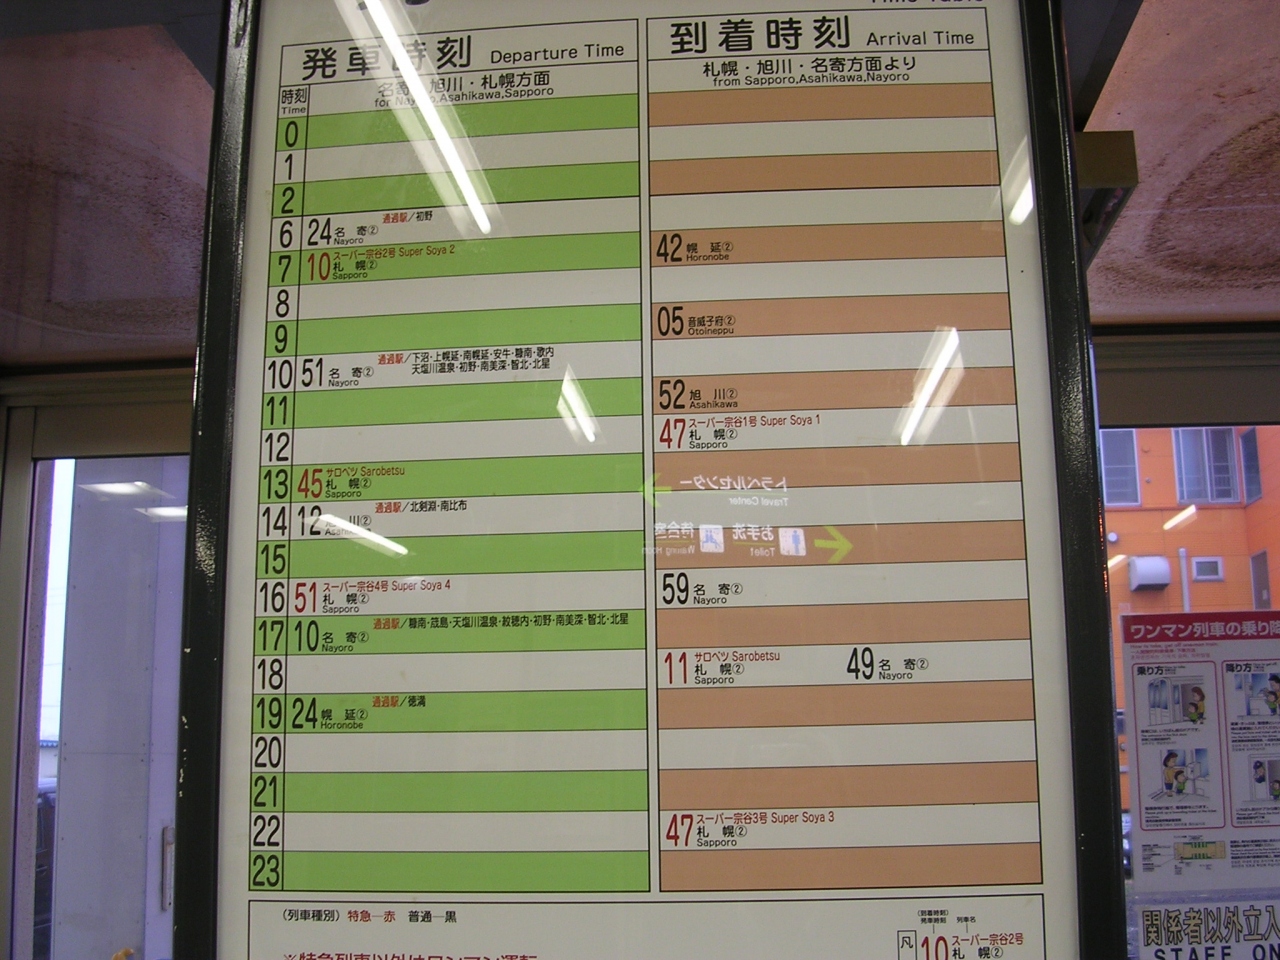 発車時刻 Departure Time
時刻
Time
名寄・旭川・札幌方面
for Nayoro,Asahikawa,Sapporo
0
1
2
6 24 名寄② 通過駅/初野
Nayoro
7 10 スーパー宗谷2号 Super Soya 2
札幌②
Sapporo
8
9
10 51 名寄② 通過駅/下沼・上幌延・南幌延・安牛・糠南・歌内
Nayoro 天塩川温泉・初野・南美深・智北・北星
11
12
13 45 サロベツ Sarobetsu
札幌②
Sapporo
14 12 旭川② 通過駅/北剣淵・南比布
Asahikawa
15
16 51 スーパー宗谷4号 Super Soya 4
札幌②
Sapporo
17 10 名寄② 通過駅/糠南・筬島・天塩川温泉・紋穂内・初野・南美深・智北・北星
Nayoro
18
19 24 幌延② 通過駅/徳満
Horonobe
20
21
22
23
到着時刻 Arrival Time
札幌・旭川・名寄方面より
from Sapporo,Asahikawa,Nayoro
42 幌延②
Horonobe
05 音威子府②
Otoineppu
52 旭川②
Asahikawa
47 スーパー宗谷1号 Super Soya 1
札幌②
Sapporo
59 名寄②
Nayoro
11 サロベツ Sarobetsu
札幌②
Sapporo
49 名寄②
Nayoro
47 スーパー宗谷3号 Super Soya 3
札幌②
Sapporo
トラベルセンター
Travel Center
待合室 お手洗
Toilet
(列車種別) 特急―赤 普通―黒
(到着時刻)
発車時刻 列車名
凡 10 スーパー宗谷2号
札幌②
※特急列車以外はワンマン運転
ワンマン列車の乗り降
乗り方
降り方
関係者以外立入
STAFF ON